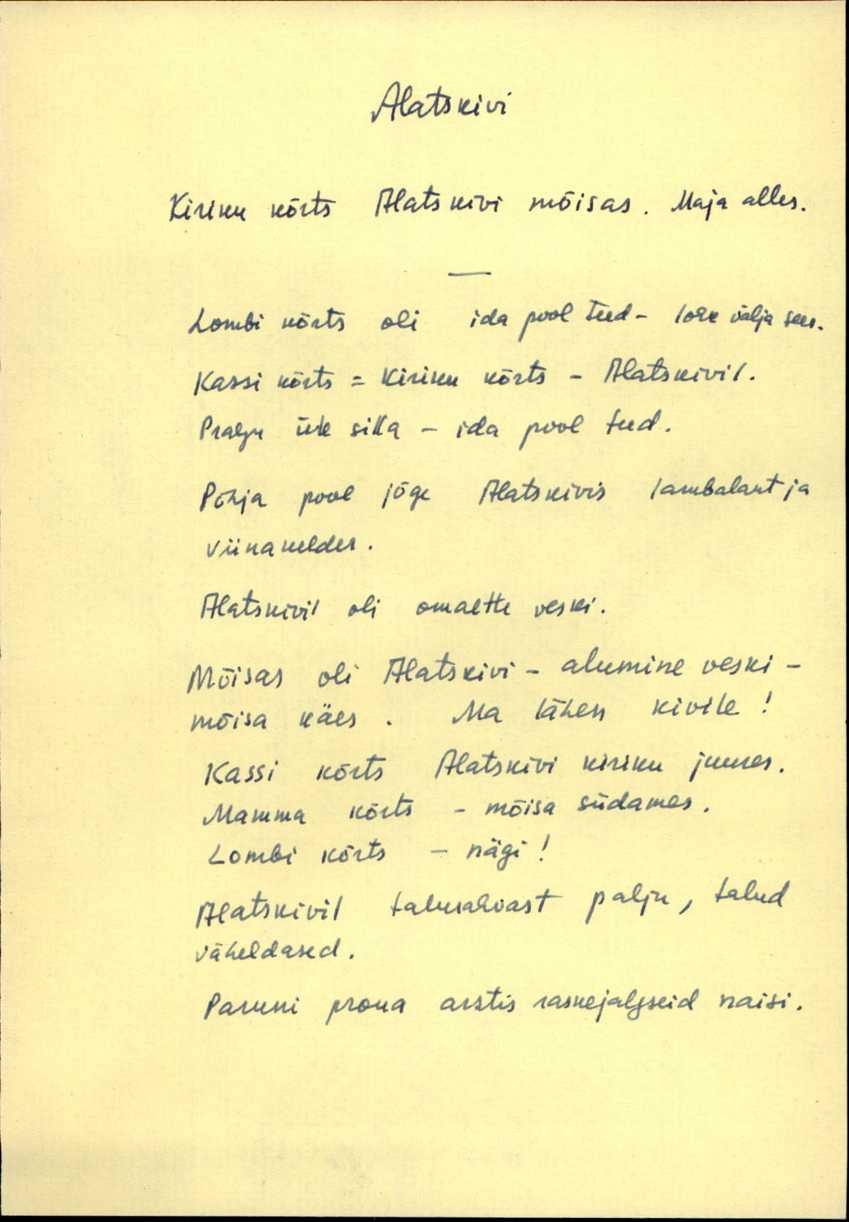 Alatskivi
Kiriku kõrts Alatskivi mõisas. Maja alles.
—
Lombi kõrts oli ida pool teed - välja sees.
Kassi kõrts = Kiriku kõrts - Alatskivil.
Pralgu üle silla - ida pool teed.
Põhja pool jõge Alatskivis lambalaut ja
viinakelder.
Alatskivil oli omaette veski.
Mõisas oli Alatskivi - alumine veski -
mõisa käes. Ma lähen kivile!
Kassi kõrts Alatskivi kiriku juures.
Mamma kõrts - mõisa südames.
Lombi kõrts - nägi!
Alatskivil talurahvast palju, talud
väheldased.
Paruni proua arstis raskejalgseid naisi.